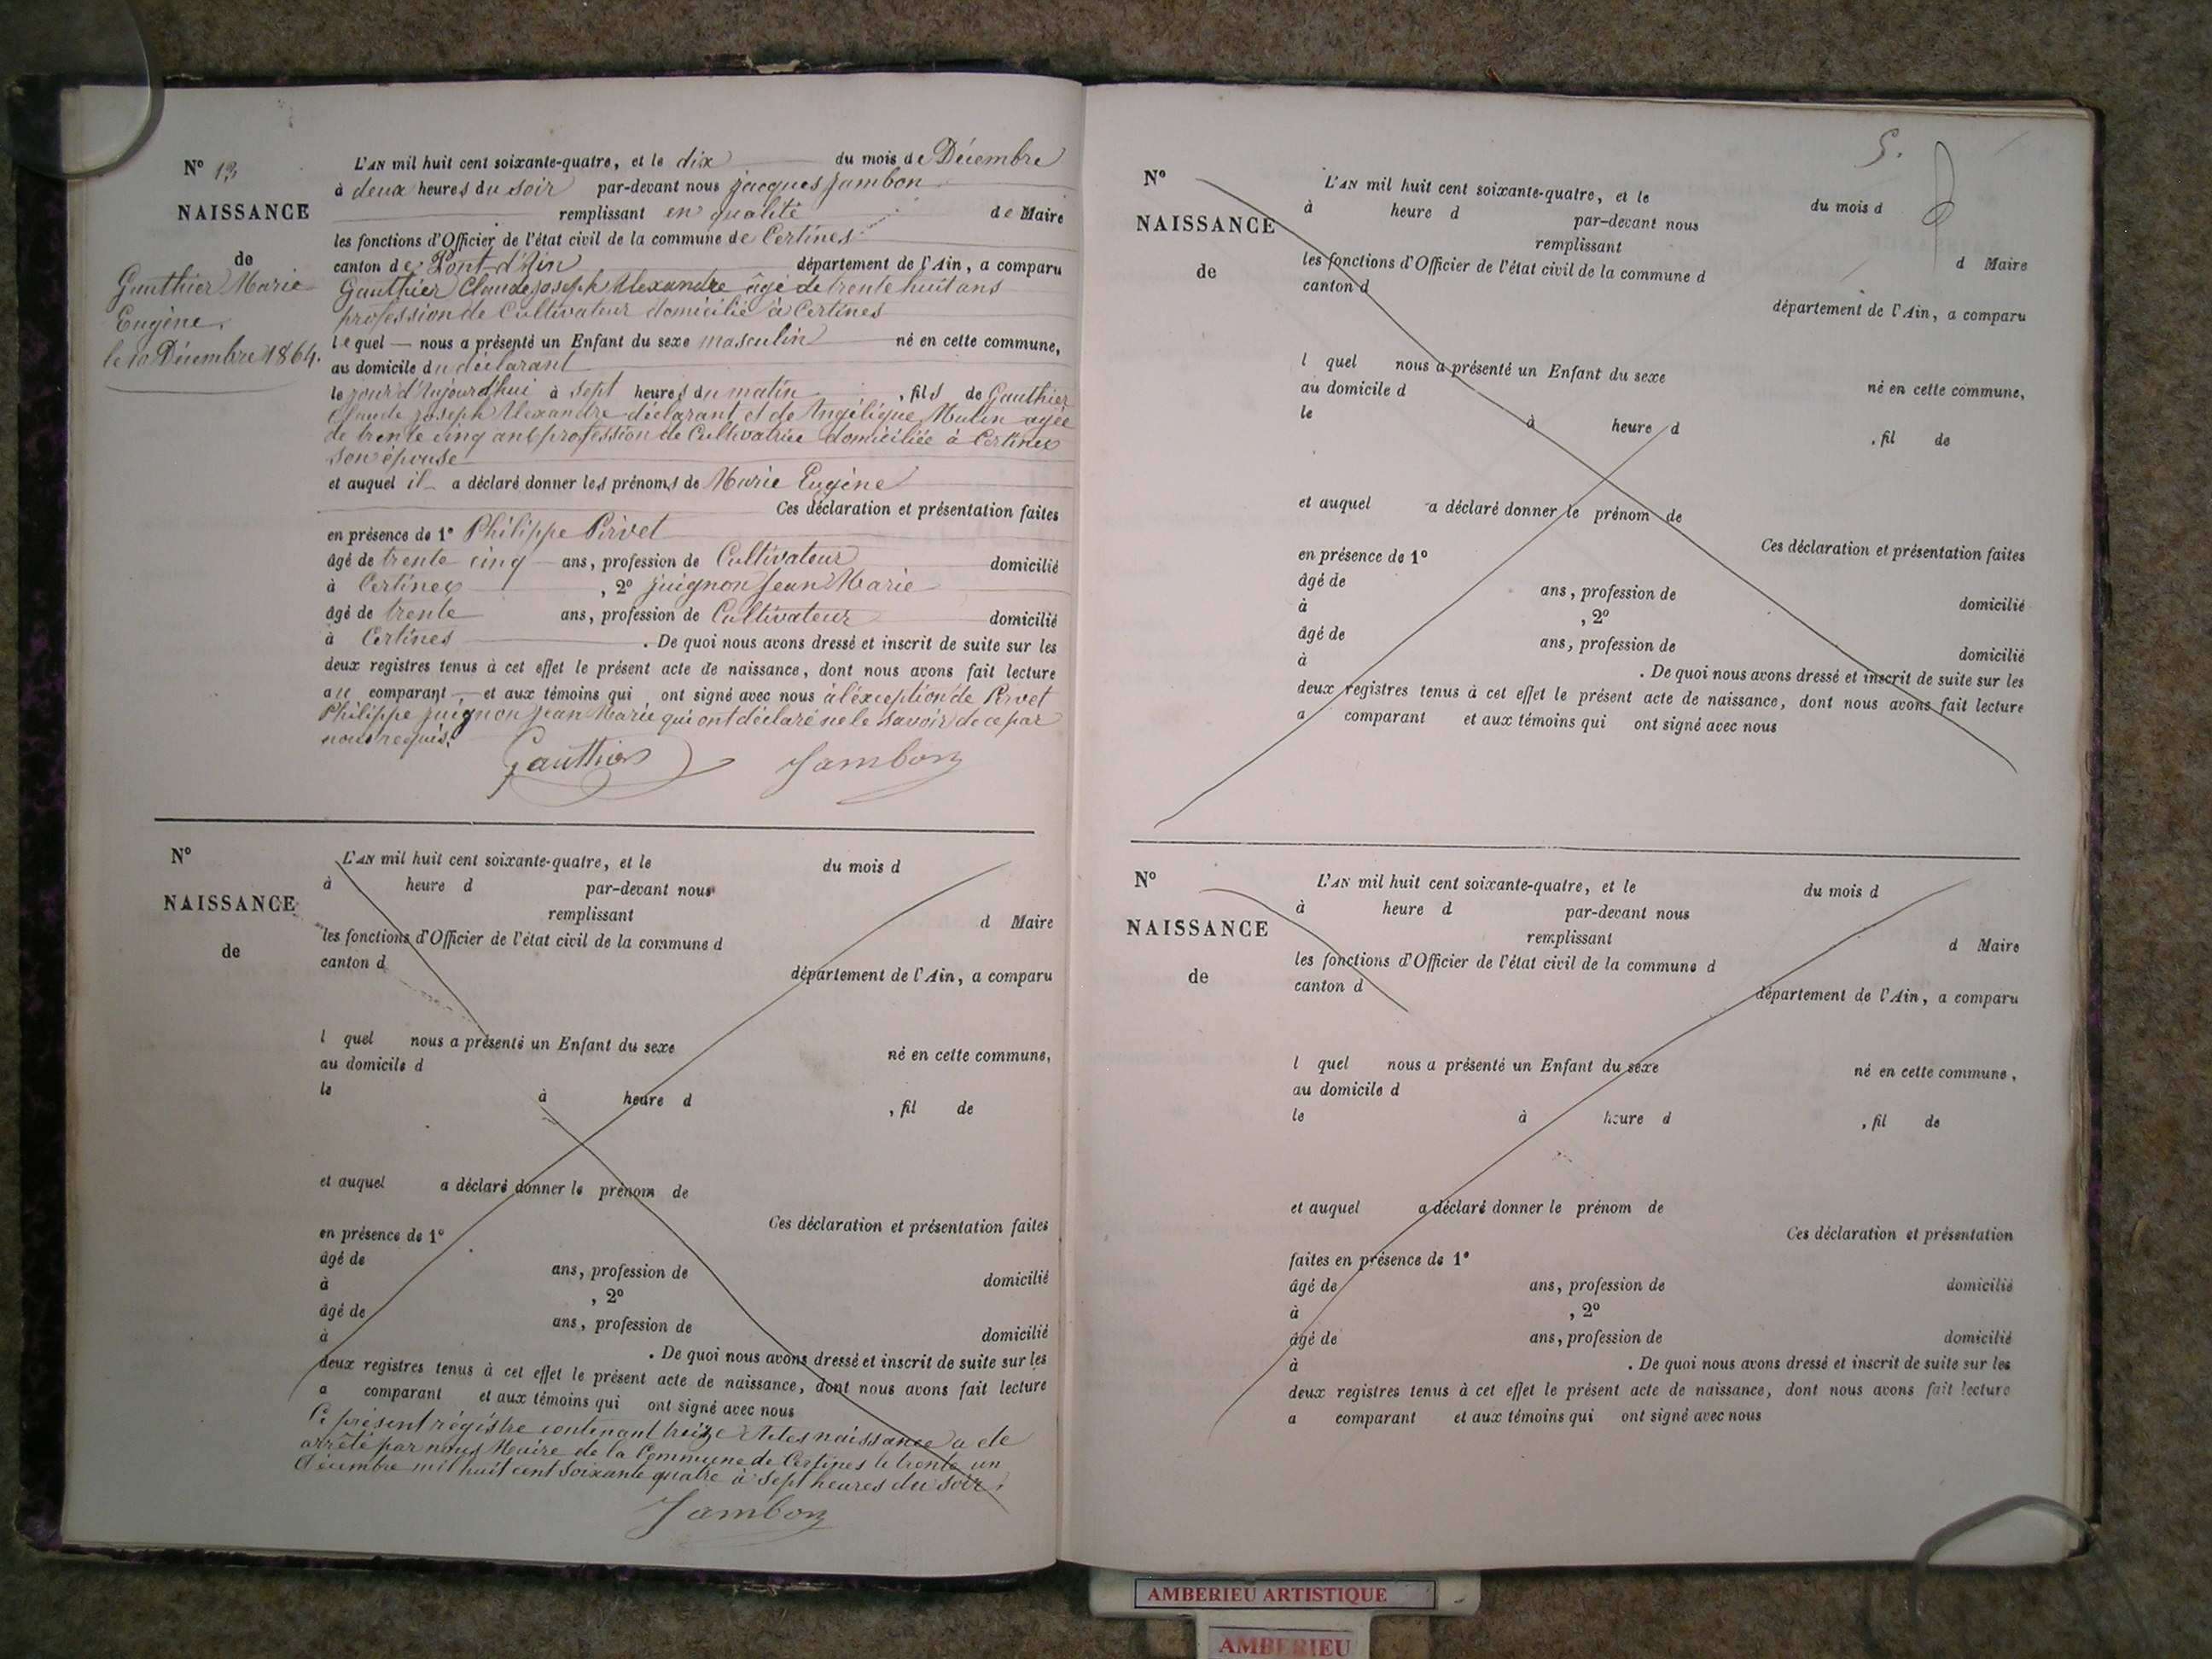 N° 13
NAISSANCE
de
Gauthier Marie
Eugène
le 10 Décembre 1864.
L'AN mil huit cent soixante-quatre, et le dix du mois de Décembre
à deux heures du soir par-devant nous Jacques Jambon
remplissant en qualité de Maire
les fonctions d'Officier de l'état civil de la commune de Certines
canton de Pont-d'Ain département de l'Ain, a comparu
Gauthier Claude Joseph Alexandre âgé de trente huit ans
profession de Cultivateur domicilié à Certines
lequel nous a présenté un Enfant du sexe masculin né en cette commune,
au domicile du déclarant
le jour d'Aujourd'hui à sept heures du matin, fils de Gauthier
Claude Joseph Alexandre déclarant et de Angélique Mulin agée
de trente cinq ans profession de Cultivatrice domiciliée à Certines
son épouse
et auquel il a déclaré donner les prénoms de Marie Eugène
Ces déclaration et présentation faites
en présence de 1° Philippe Pirvet
âgé de trente cinq ans, profession de Cultivateur domicilié
à Certines, 2° Juignon Jean Marie
âgé de trente ans, profession de Cultivateur domicilié
à Certines. De quoi nous avons dressé et inscrit de suite sur les
deux registres tenus à cet effet le présent acte de naissance, dont nous avons fait lecture
au comparant et aux témoins qui ont signé avec nous à l'éxception de Pirvet
Philippe Juignon Jean Marie qui ont déclaré ne le savoir de ce par
nous requis.
Gauthier Jambon
N°
NAISSANCE
de
L'AN mil huit cent soixante-quatre, et le du mois d
à heure d par-devant nous
remplissant d Maire
les fonctions d'Officier de l'état civil de la commune d
canton d département de l'Ain, a comparu
l quel nous a présenté un Enfant du sexe né en cette commune,
au domicile d
le à heure d , fil de
et auquel a déclaré donner le prénom de
Ces déclaration et présentation faites
en présence de 1°
âgé de ans, profession de domicilié
à , 2°
âgé de ans, profession de domicilié
à . De quoi nous avons dressé et inscrit de suite sur les
deux registres tenus à cet effet le présent acte de naissance, dont nous avons fait lecture
a comparant et aux témoins qui ont signé avec nous
Le présent régistre contenant treize Actes naissance a été
arrêté par nous Maire de la Commune de Certines le trente un
Décembre mil huit cent soixante quatre à sept heures du soir.
Jambon
5.
N°
NAISSANCE
de
L'AN mil huit cent soixante-quatre, et le du mois d
à heure d par-devant nous
remplissant d Maire
les fonctions d'Officier de l'état civil de la commune d
canton d département de l'Ain, a comparu
l quel nous a présenté un Enfant du sexe né en cette commune,
au domicile d
le à heure d , fil de
et auquel a déclaré donner le prénom de
Ces déclaration et présentation faites
en présence de 1°
âgé de ans, profession de domicilié
à , 2°
âgé de ans, profession de domicilié
à . De quoi nous avons dressé et inscrit de suite sur les
deux registres tenus à cet effet le présent acte de naissance, dont nous avons fait lecture
a comparant et aux témoins qui ont signé avec nous
N°
NAISSANCE
de
L'AN mil huit cent soixante-quatre, et le du mois d
à heure d par-devant nous
remplissant d Maire
les fonctions d'Officier de l'état civil de la commune d
canton d département de l'Ain, a comparu
l quel nous a présenté un Enfant du sexe né en cette commune,
au domicile d
le à heure d , fil de
et auquel a déclaré donner le prénom de
Ces déclaration et présentation
faites en présence de 1°
âgé de ans, profession de domicilié
à , 2°
âgé de ans, profession de domicilié
à . De quoi nous avons dressé et inscrit de suite sur les
deux registres tenus à cet effet le présent acte de naissance, dont nous avons fait lecture
a comparant et aux témoins qui ont signé avec nous
AMBERIEU ARTISTIQUE
AMBERIEU